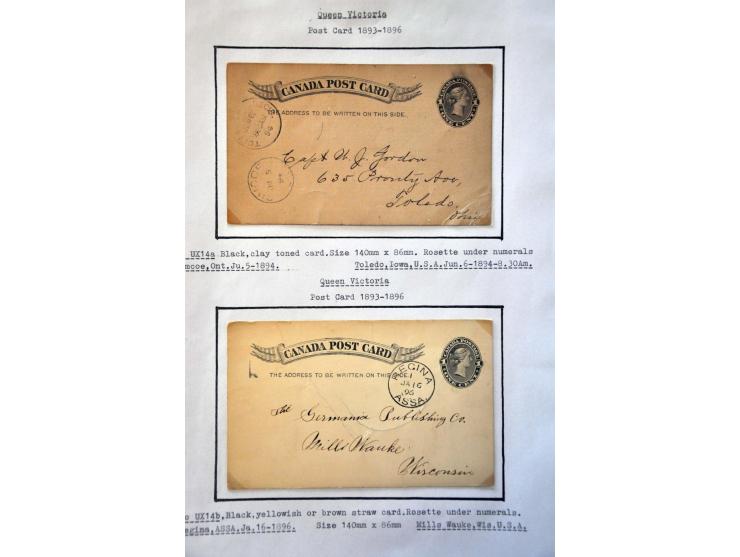 Queen Victoria
Post Card 1893-1896
CANADA POST CARD
CANADA POSTAGE
ONE CENT
THE ADDRESS TO BE WRITTEN ON THIS SIDE.
Capt W. J. Gordon
635 Prouty Ave,
Toledo.
Ohio
UX14a Black,clay toned card.Size 140mm x 86mm. Rosette under numerals
mcoe,Ont.Ju.5-1894. Toledo,Iowa,U.S.A.Jun.6-1894-8.30Am.
Queen Victoria
Post Card 1893-1896
CANADA POST CARD
CANADA POSTAGE
ONE CENT
THE ADDRESS TO BE WRITTEN ON THIS SIDE.
REGINA
1
JA 16
96
ASSA.
The Germania Publishing Co.
Mills Wauke
Wisconsin
o UX14b,Black,yellowish or brown straw card.Rosette under numerals.
egina,ASSA,Ja.16-1896. Size 140mm x 86mm Mills Wauke,Wis.U.S.A.